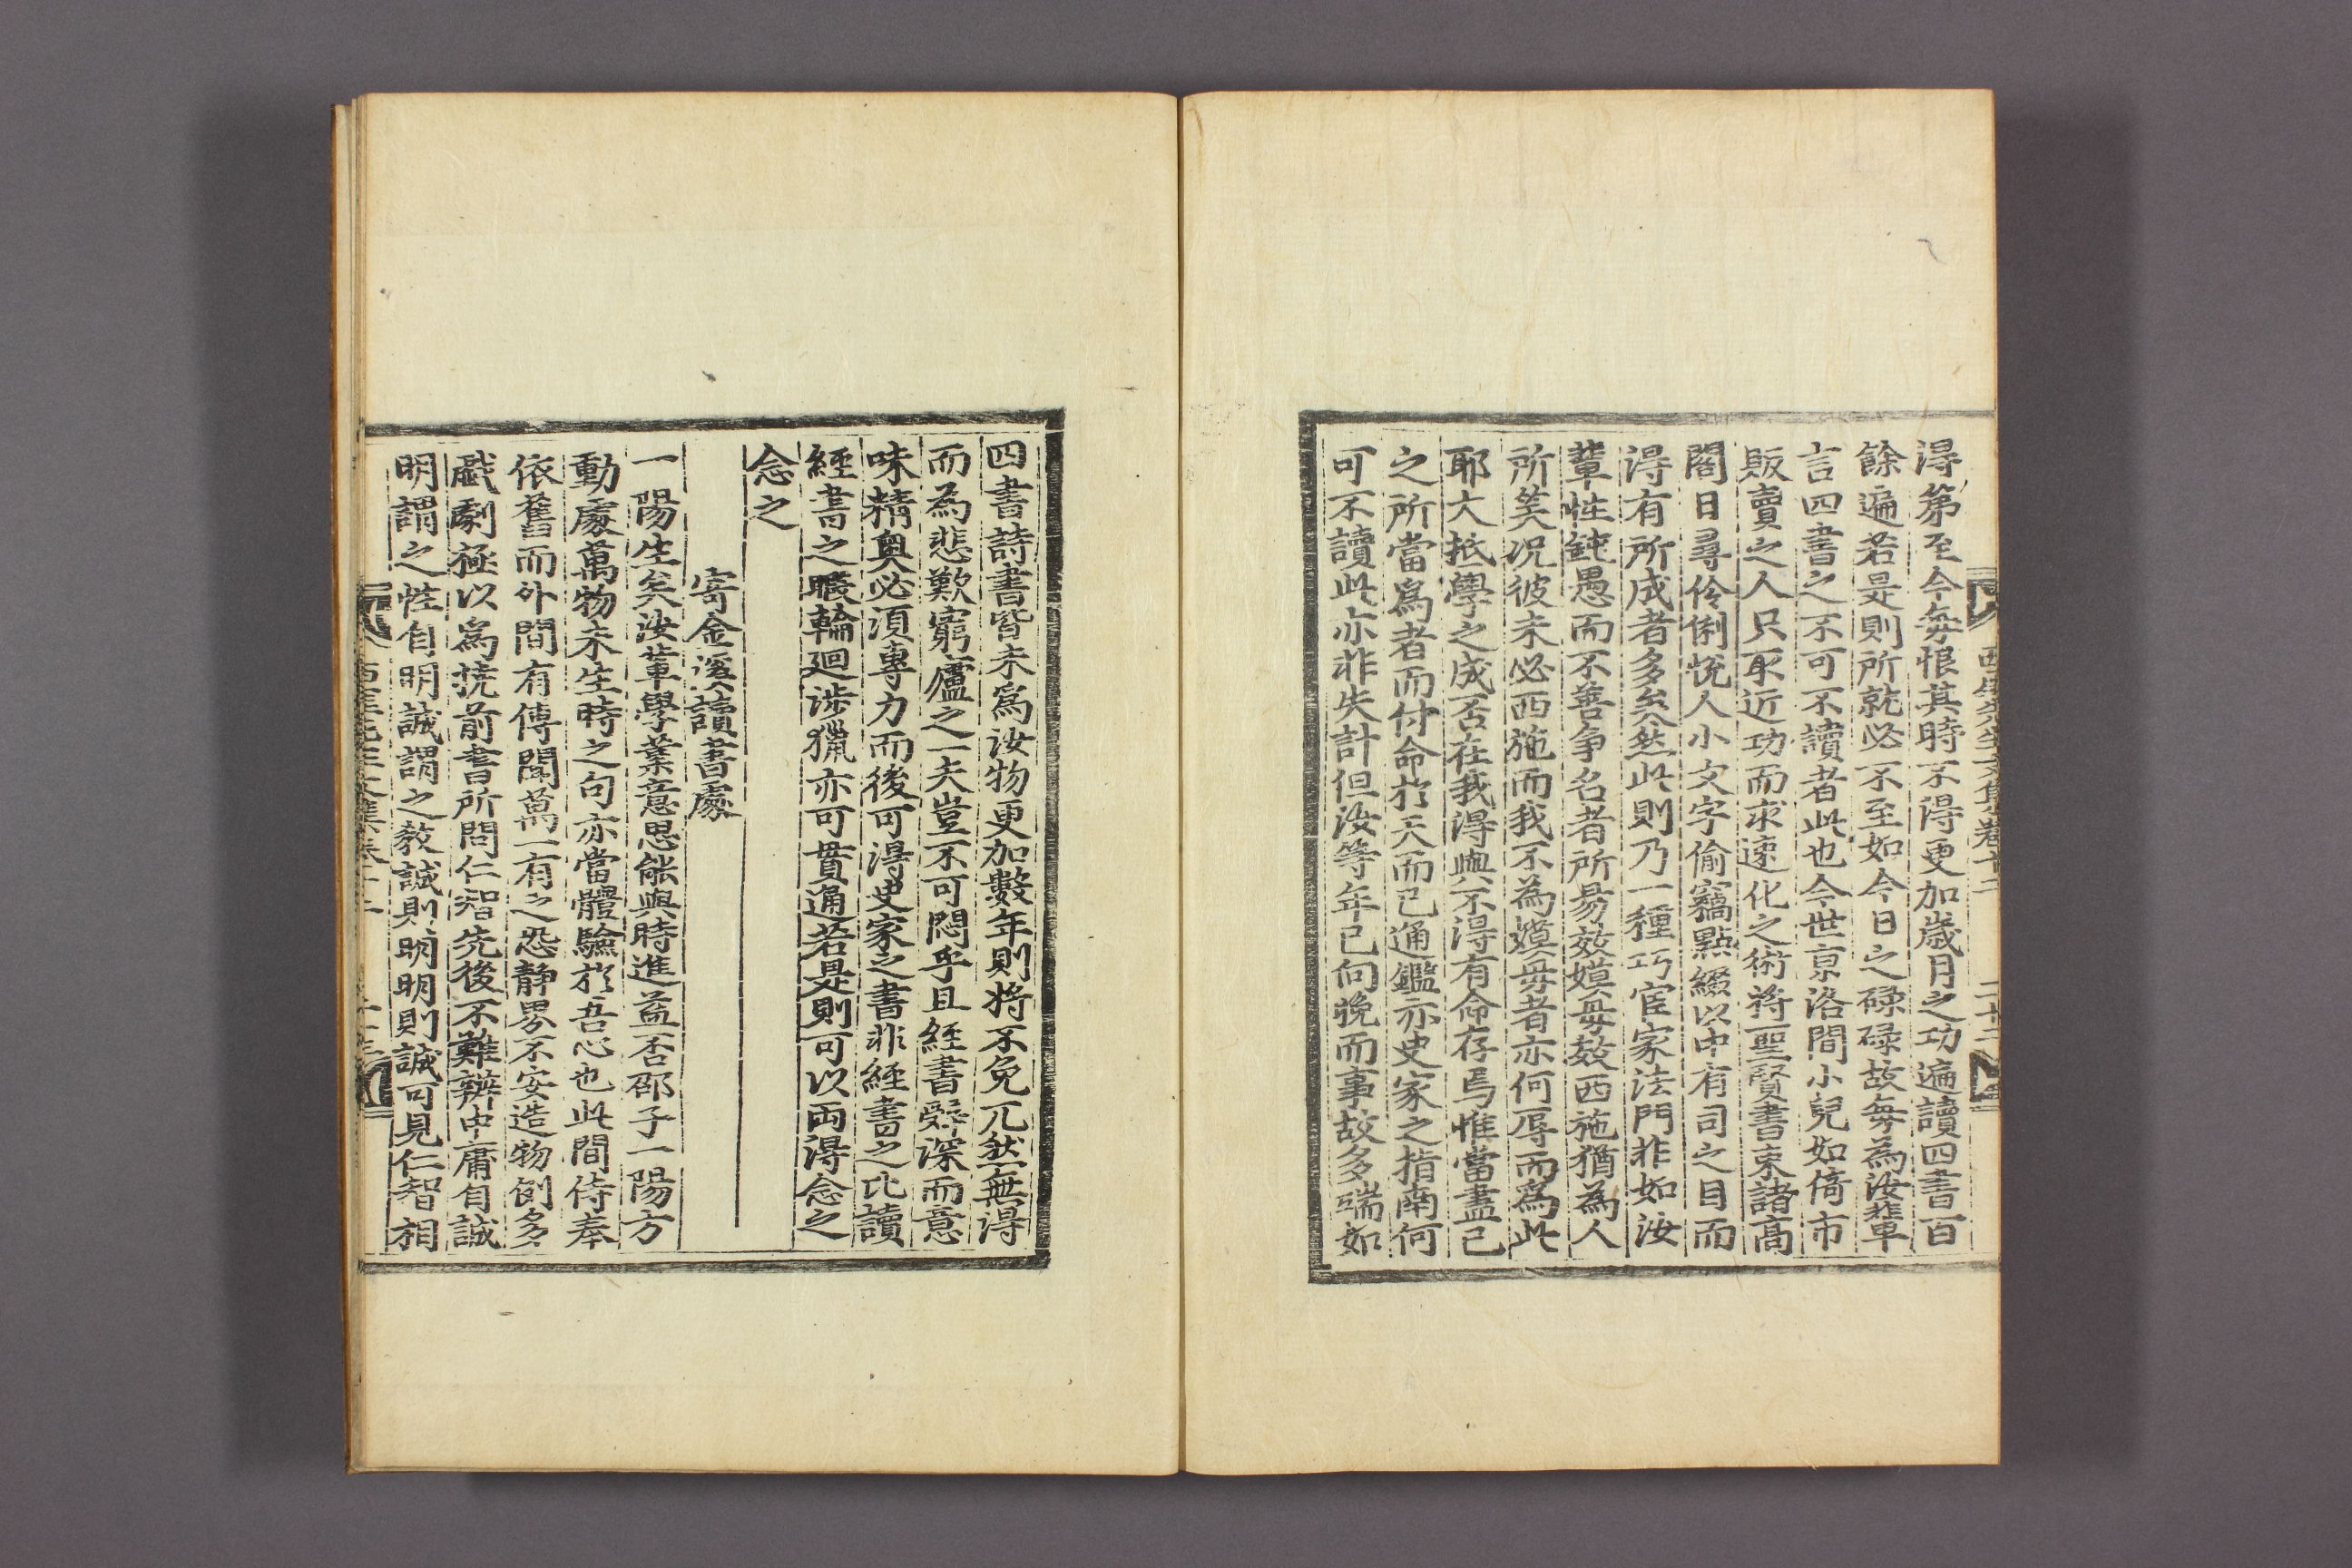 西厓先生文集卷十二 二十二
得第至今每恨其時不得更加歲月之功遍讀四書百
餘遍若是則所就必不至如今日之碌碌故每為汝輩
言四書之不可不讀者此也今世京洛間小兒如倚市
販賣之人只取近功而求速化之術將聖賢書束諸高
閣日尋伶俐悅人小文字偷竊點綴以中有司之目而
得有所成者多矣然此則乃一種巧宦家法門非如汝
輩性鈍愚而不善爭名者所易效嫫母效西施猶為人
所笑況彼未必西施而我不為嫫母者亦何辱而為此
耶大抵學之成否在我得與不得有命存焉惟當盡己
之所當爲者而付命於天而已通鑑亦史家之指南何
可不讀此亦非失計但汝等年已向晚而事故多端如
四書詩書皆未爲汝物更加數年則將不免兀然無得
而為悲歎窮廬之一夫豈不可悶乎且經書深而意
味精奧必須專力而後可得史家之書非經書之比讀
經書之暇輪廻涉獵亦可貫通若是則可以両得念之
念之
寄金溪讀書處
一陽生矣汝輩學業意思能與時進益否邵子一陽方
動處萬物未生時之句亦當體驗於吾心也此間侍奉
依舊而外間有傳聞萬一有之恐靜界不安造物創多
戱劇極以爲撓前書所問仁智先後不難辨中庸自誠
明謂之性自明誠謂之教誠則明明則誠可見仁智相
西厓先生文集卷十二